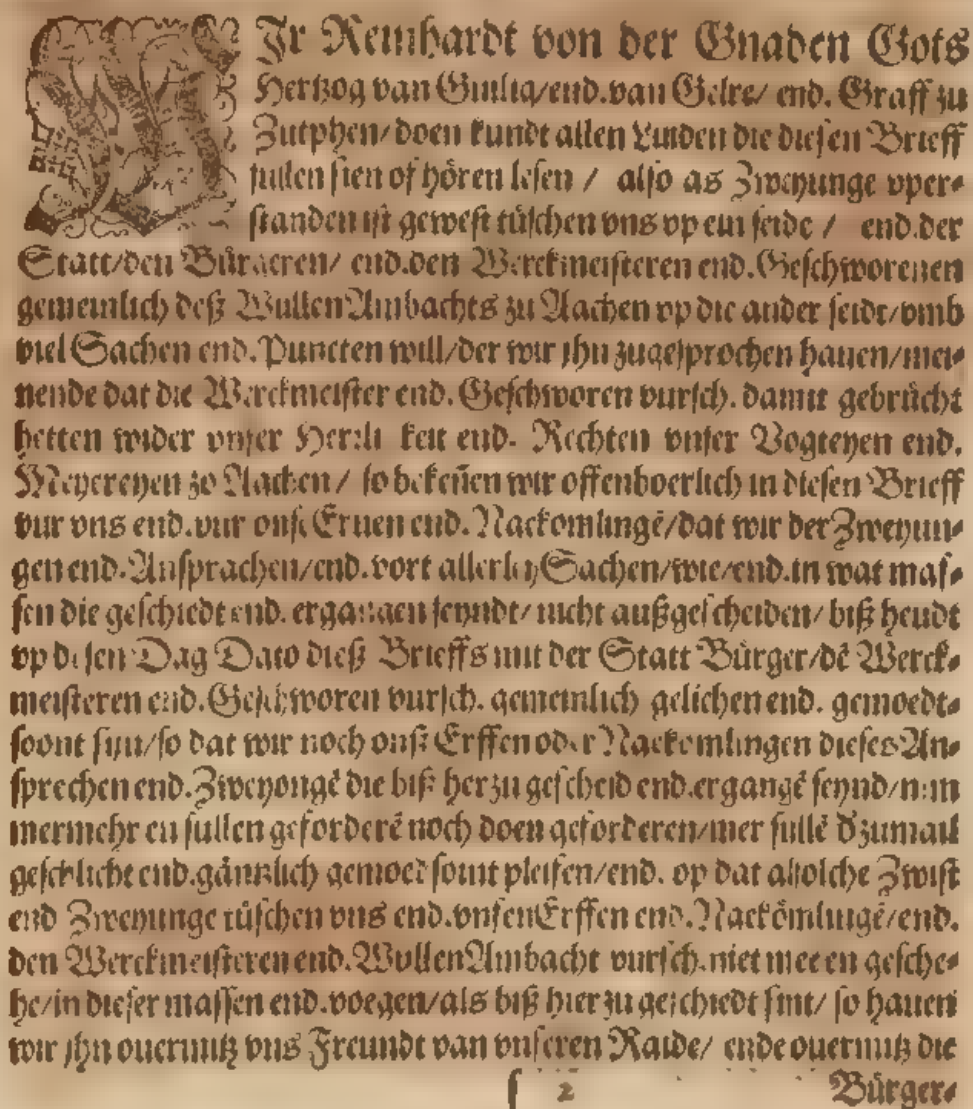 WJr Reinhardt von der Gnaden Gots
Hertzog van Guilig/end.van Gelre/ end. Graff zu
Zutphen/doen kundt allen Luiden die diesen Brieff
sullen sien of hören lesen / also as Zweyunge vper-
standen ist gewest tüschen vns vp ein seide / end.der
Statt/den Bürgeren/ end.den Werckmeisteren end.Geschworenen
gemeinlich deß Wullen Ambachts zu Aachen vp die ander seidt/vmb
viel Sachen end.Puncten will/der wir jhn zugesprochen hauen/mei-
nende dat die Werckmeister end. Geschworen vursch. damit gebrücht
hetten wider vnser Herrlikeit end. Rechten vnser Vogteyen end.
Meyereyen zo Aachen / so bekeñen wir offenboerlich in diesen Brieff
vur vns end.vur onse Eruen end. Nackomlingē/dat wir der Zweyun-
gen end.Ansprachen/end.vort allerley Sachen/wie/end.in wat mas-
sen die geschiedt end. ergangen seyndt/ nicht außgescheiden/ biß heudt
vp diesen Dag Dato dieß Brieffs mit der Statt Bürger/dē Werck-
meisteren end.Geschworen vursch. gemeinlich gelichen end. gemoedt-
soont syn/so dat wir noch onse Erffen oder Nackomlingen dieses An-
sprechen end.Zweyongē die biß herzu gescheid end.ergangē seynd/nim
mermehr en sullen geforderē noch doen geforderen/mer sullē dzumail
geschlicht end.gäntzlich gemoedsoint pleifen/end. op dat alsolche Zwist
end Zweyunge tüschen vns end.vnsen Erffen end.Nackömlingē/end.
den Werckmeisteren end.Wullen Ambacht vursch.niet mee en gesche-
he/in dieser massen end.voegen/als biß hier zu geschiedt sint/ so hauen
wir jhn ouermitz vns Freundt van vnseren Raide/ ende ouermitz die
s 2 Bürger-